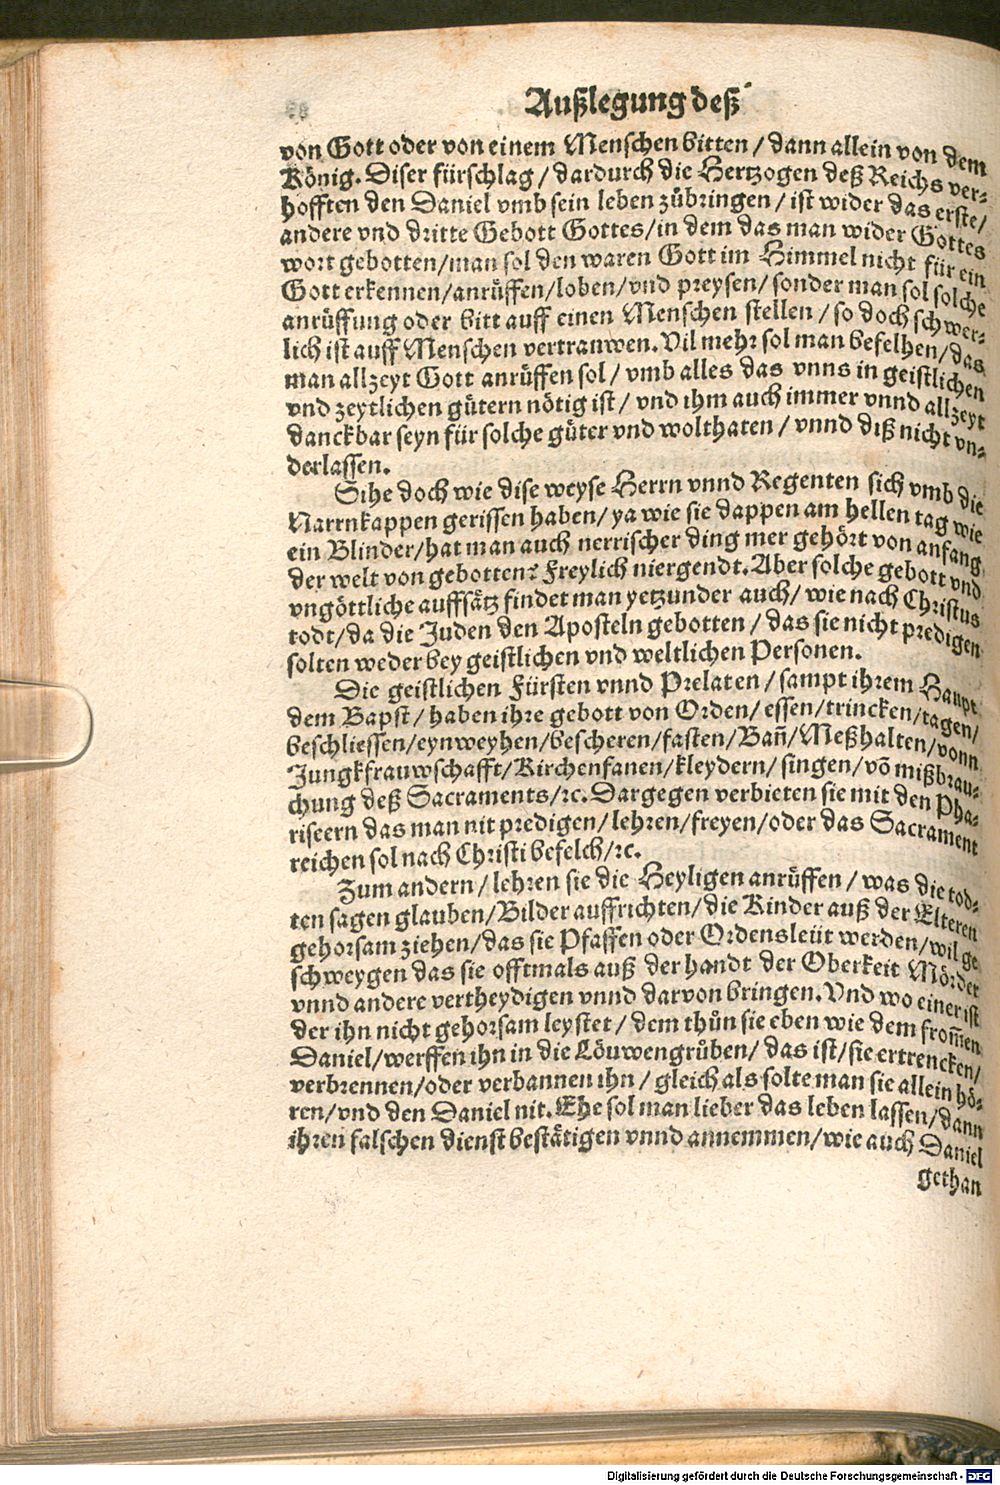 Außlegung deß
von Gott oder von einem Menschen bitten / dann allein von dem
König. Diser fürschlag / dardurch die Hertzogen deß Reichs ver-
hofften den Daniel vmb sein leben zůbringen / ist wider das erste /
andere vnd dritte Gebott Gottes / in dem das man wider Gottes
wort gebotten / man sol den waren Gott im Himmel nicht für ein
Gott erkennen / anrüffen / loben / vnd preysen / sonder man sol solche
anrüffung oder bitt auff einen Menschen stellen / so doch schwer-
lich ist auff Menschen vertrauwen. Vil mehr sol man befelhen / das
man allzeyt Gott anrüffen sol / vmb alles das vnns in geistlichen
vnd zeytlichen gütern nötig ist / vnd ihm auch immer vnnd allzeyt
danckbar seyn für solche güter vnd wolthaten / vnnd diß nicht vn-
derlassen.
Sihe doch wie dise weyse Herrn vnnd Regenten sich vmb die
Narrnkappen gerissen haben / ya wie sie dappen am hellen tag wie
ein Blinder / hat man auch nerrischer ding mer gehört von anfang
der welt von gebotten? Freylich niergendt. Aber solche gebott vnd
vngöttliche auffsätz findet man yetzunder auch / wie nach Christus
todt / da die Juden den Aposteln gebotten / das sie nicht predigen
solten weder bey geistlichen vnd weltlichen Personen.
Die geistlichen Fürsten vnnd Prelaten / sampt ihrem Haupt
dem Bapst / haben ihre gebott von Orden / essen / trincken / tagen /
beschliessen / eynweyhen / bescheren / fasten / Bañ / Meßhalten / vonn
Jungkfrauwschafft / Kirchenfanen / kleydern / singen / võ mißbrau-
chung deß Sacraments / ꝛc. Dargegen verbieten sie mit den Pha-
riseern das man nit predigen / lehren / freyen / oder das Sacrament
reichen sol nach Christi befelch / ꝛc.
Zum andern / lehren sie die Heyligen anrüffen / was die tod-
ten sagen glauben / Bilder auffrichten / die Kinder auß der Elteren
gehorsam ziehen / das sie Pfaffen oder Ordensleüt werden / wil ge
schweygen das sie offtmals auß der handt der Oberkeit Mörder
vnnd andere vertheydigen vnnd darvon bringen. Vnd wo einer ist
der ihn nicht gehorsam leystet / dem thůn sie eben wie dem from̃en
Daniel / werffen ihn in die Löuwengrůben / das ist / sie ertrencken /
verbrennen / oder verbannen ihn / gleich als solte man sie allein hö-
ren / vnd den Daniel nit. Ehe sol man lieber das leben lassen / dann
ihren falschen dienst bestätigen vnnd annemmen / wie auch Daniel
gethan
Digitalisierung gefördert durch die Deutsche Forschungsgemeinschaft - DFG